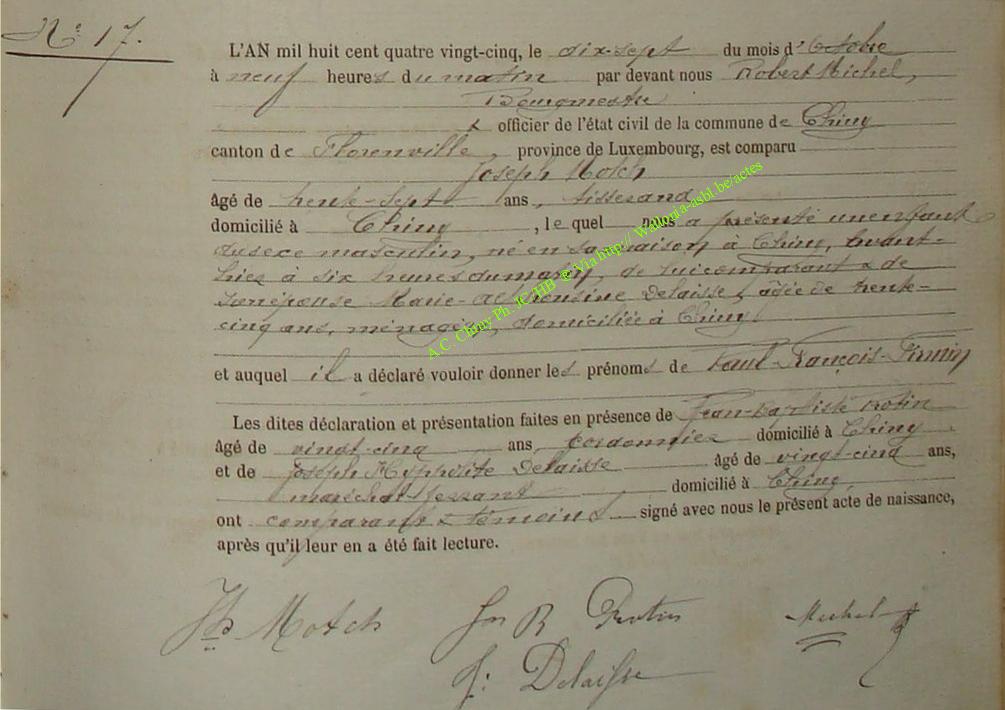 N° 17.
L'AN mil huit cent quatre vingt-cinq, le dix-sept du mois d'Octobre
à neuf heures du matin par devant nous Robert Michel,
Bourgmestre
& officier de l'état civil de la commune de Chiny
canton de Florenville, province de Luxembourg, est comparu
Joseph Motch
âgé de trente-sept ans, tisserand
domicilié à Chiny, le quel nous a présenté un enfant
du sexe masculin, né en sa maison à Chiny, avant-
hier à six heures du matin, de lui comparant & de
son épouse Marie- Delaisse, âgée de trente-
cinq ans, ménagère, domiciliée à Chiny
et auquel il a déclaré vouloir donner les prénoms de Paul-François-Firmin
Les dites déclaration et présentation faites en présence de Jean-Baptiste
âgé de vingt-cinq ans, cordonnier domicilié à Chiny
et de Joseph Hyppolite Delaisse âgé de vingt-cinq ans,
maréchal ferrant domicilié à Chiny,
ont comparant & témoins signé avec nous le présent acte de naissance,
après qu'il leur en a été fait lecture.
Jh Motch Jn B Michel
J: Delaisse
A.C. Chiny Ph. JC HB @ Via http:// Wallonia-asbl.be/actes